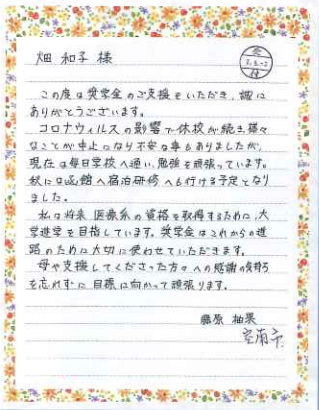 畑 和子 様
この度は奨学金のご支援をいただき、誠に
ありがとうございます。
コロナウィルスの影響で休校が続き様々
なことが中止になり不安な事もありましたが、
現在は毎日学校へ通い、勉強を頑張っています。
秋には函館へ宿泊研修へも行ける予定となり
ました。
私は将来 医療系の資格を取得するために、大
学進学を目指しています。奨学金はこれからの進
路のために大切に使わせていただきます。
母や支援してくださった方々への感謝の気持ち
を忘れずに目標に向かって頑張ります。
藤原 柚果